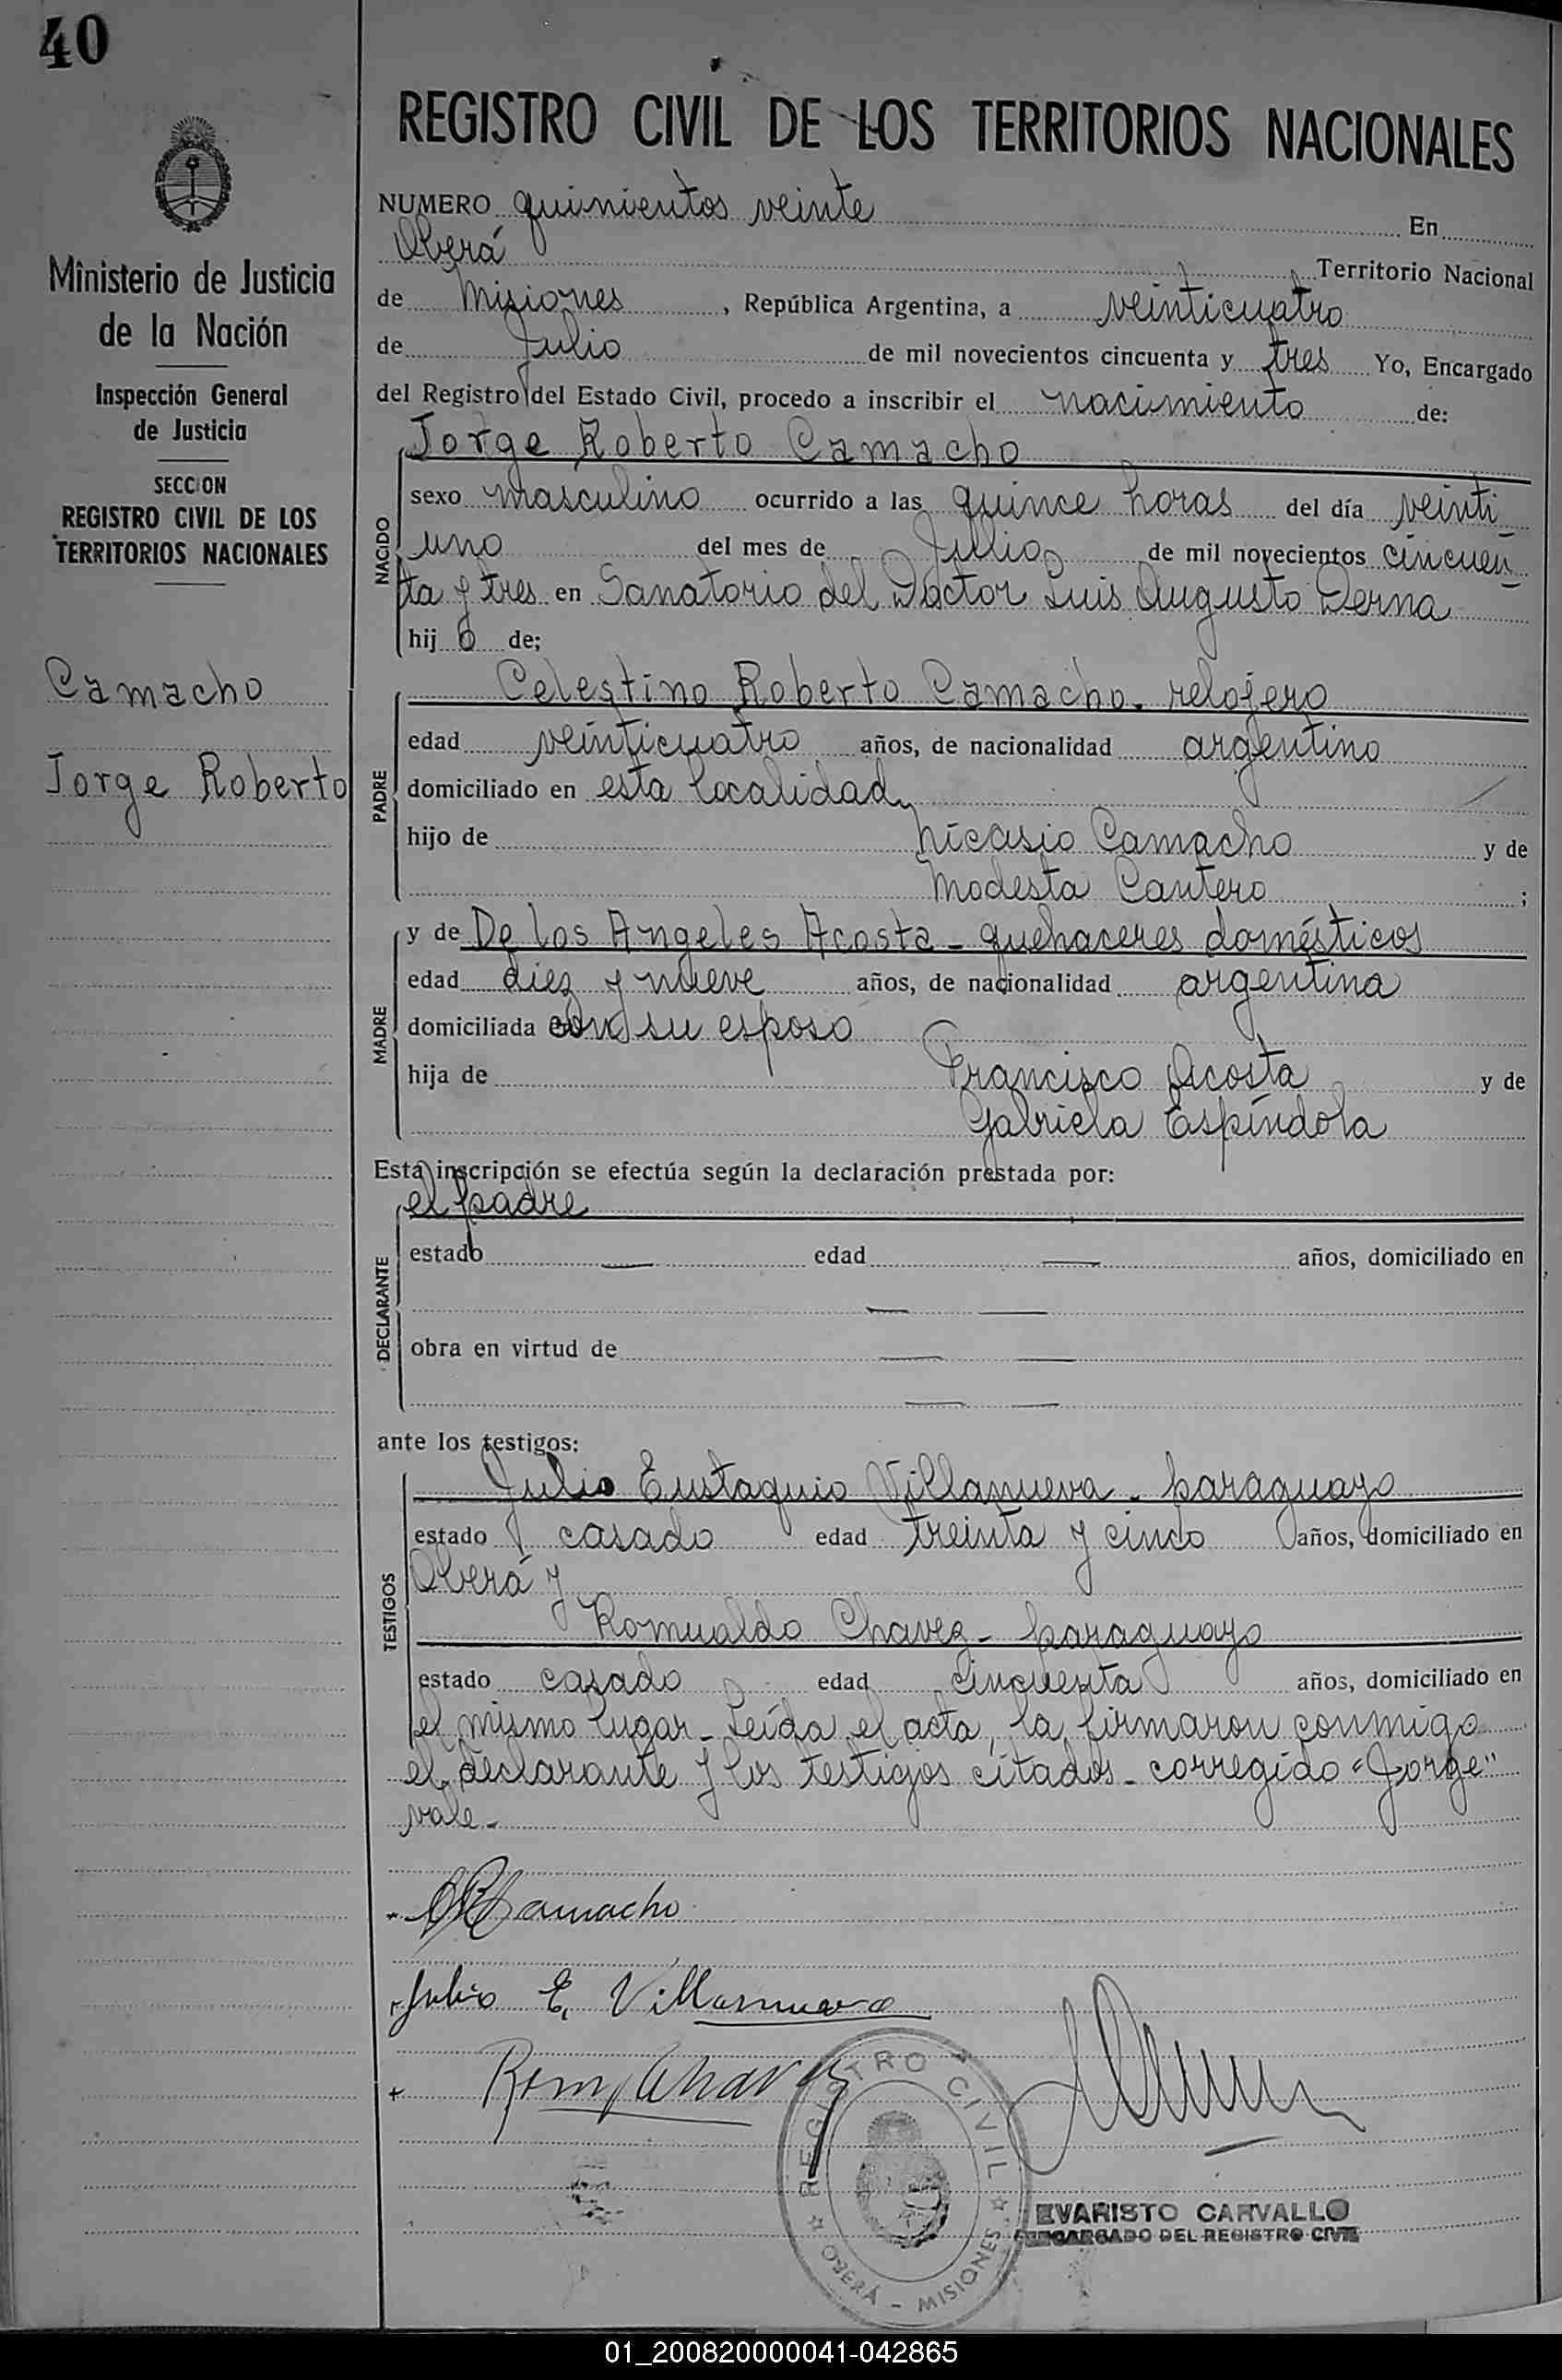 40
REGISTRO CIVIL DE LOS TERRITORIOS NACIONALES
Ministerio de Justicia
de la Nación
Inspección General
de Justicia
SECCION
REGISTRO CIVIL DE LOS
TERRITORIOS NACIONALES
Camacho
Jorge Roberto
NUMERO quinientos veinte En
Oberá Territorio Nacional
de Misiones , República Argentina, a veinticuatro
de Julio de mil novecientos cincuenta y tres Yo, Encargado
del Registro del Estado Civil, procedo a inscribir el nacimiento de:
Jorge Roberto Camacho
NACIDO
sexo masculino ocurrido a las quince horas del día veinti
uno del mes de Julio de mil novecientos cincuen
ta y tres en Sanatorio del Doctor Luis Augusto Derna
hij o de;
PADRE
Celestino Roberto Camacho. relojero
edad veinticuatro años, de nacionalidad argentino
domiciliado en esta localidad
hijo de Nicasio Camacho y de
Modesta Cantero ;
MADRE
y de De los Angeles Acosta - quehaceres domésticos
edad diez y nueve años, de nacionalidad argentina
domiciliada con su esposo
hija de Francisco Acosta y de
Gabriela Espíndola
Esta inscripción se efectúa según la declaración prestada por:
el padre
DECLARANTE
estado — edad — años, domiciliado en
— —
obra en virtud de — —
— —
ante los testigos:
TESTIGOS
Julio Eustaquio Villanueva - paraguayo
estado casado edad treinta y cinco años, domiciliado en
Oberá y
Romualdo Chavez - paraguayo
estado casado edad cincuenta años, domiciliado en
el mismo lugar - Leída el acta, la firmaron conmigo
el declarante y los testigos citados - corregido "Jorge"
vale -
Camacho
Julio E. Villanueva
Rom Chavez
REGISTRO CIVIL
OBERÁ - MISIONES
EVARISTO CARVALLO
ENCARGADO DEL REGISTRO CIVIL
01_200820000041-042865